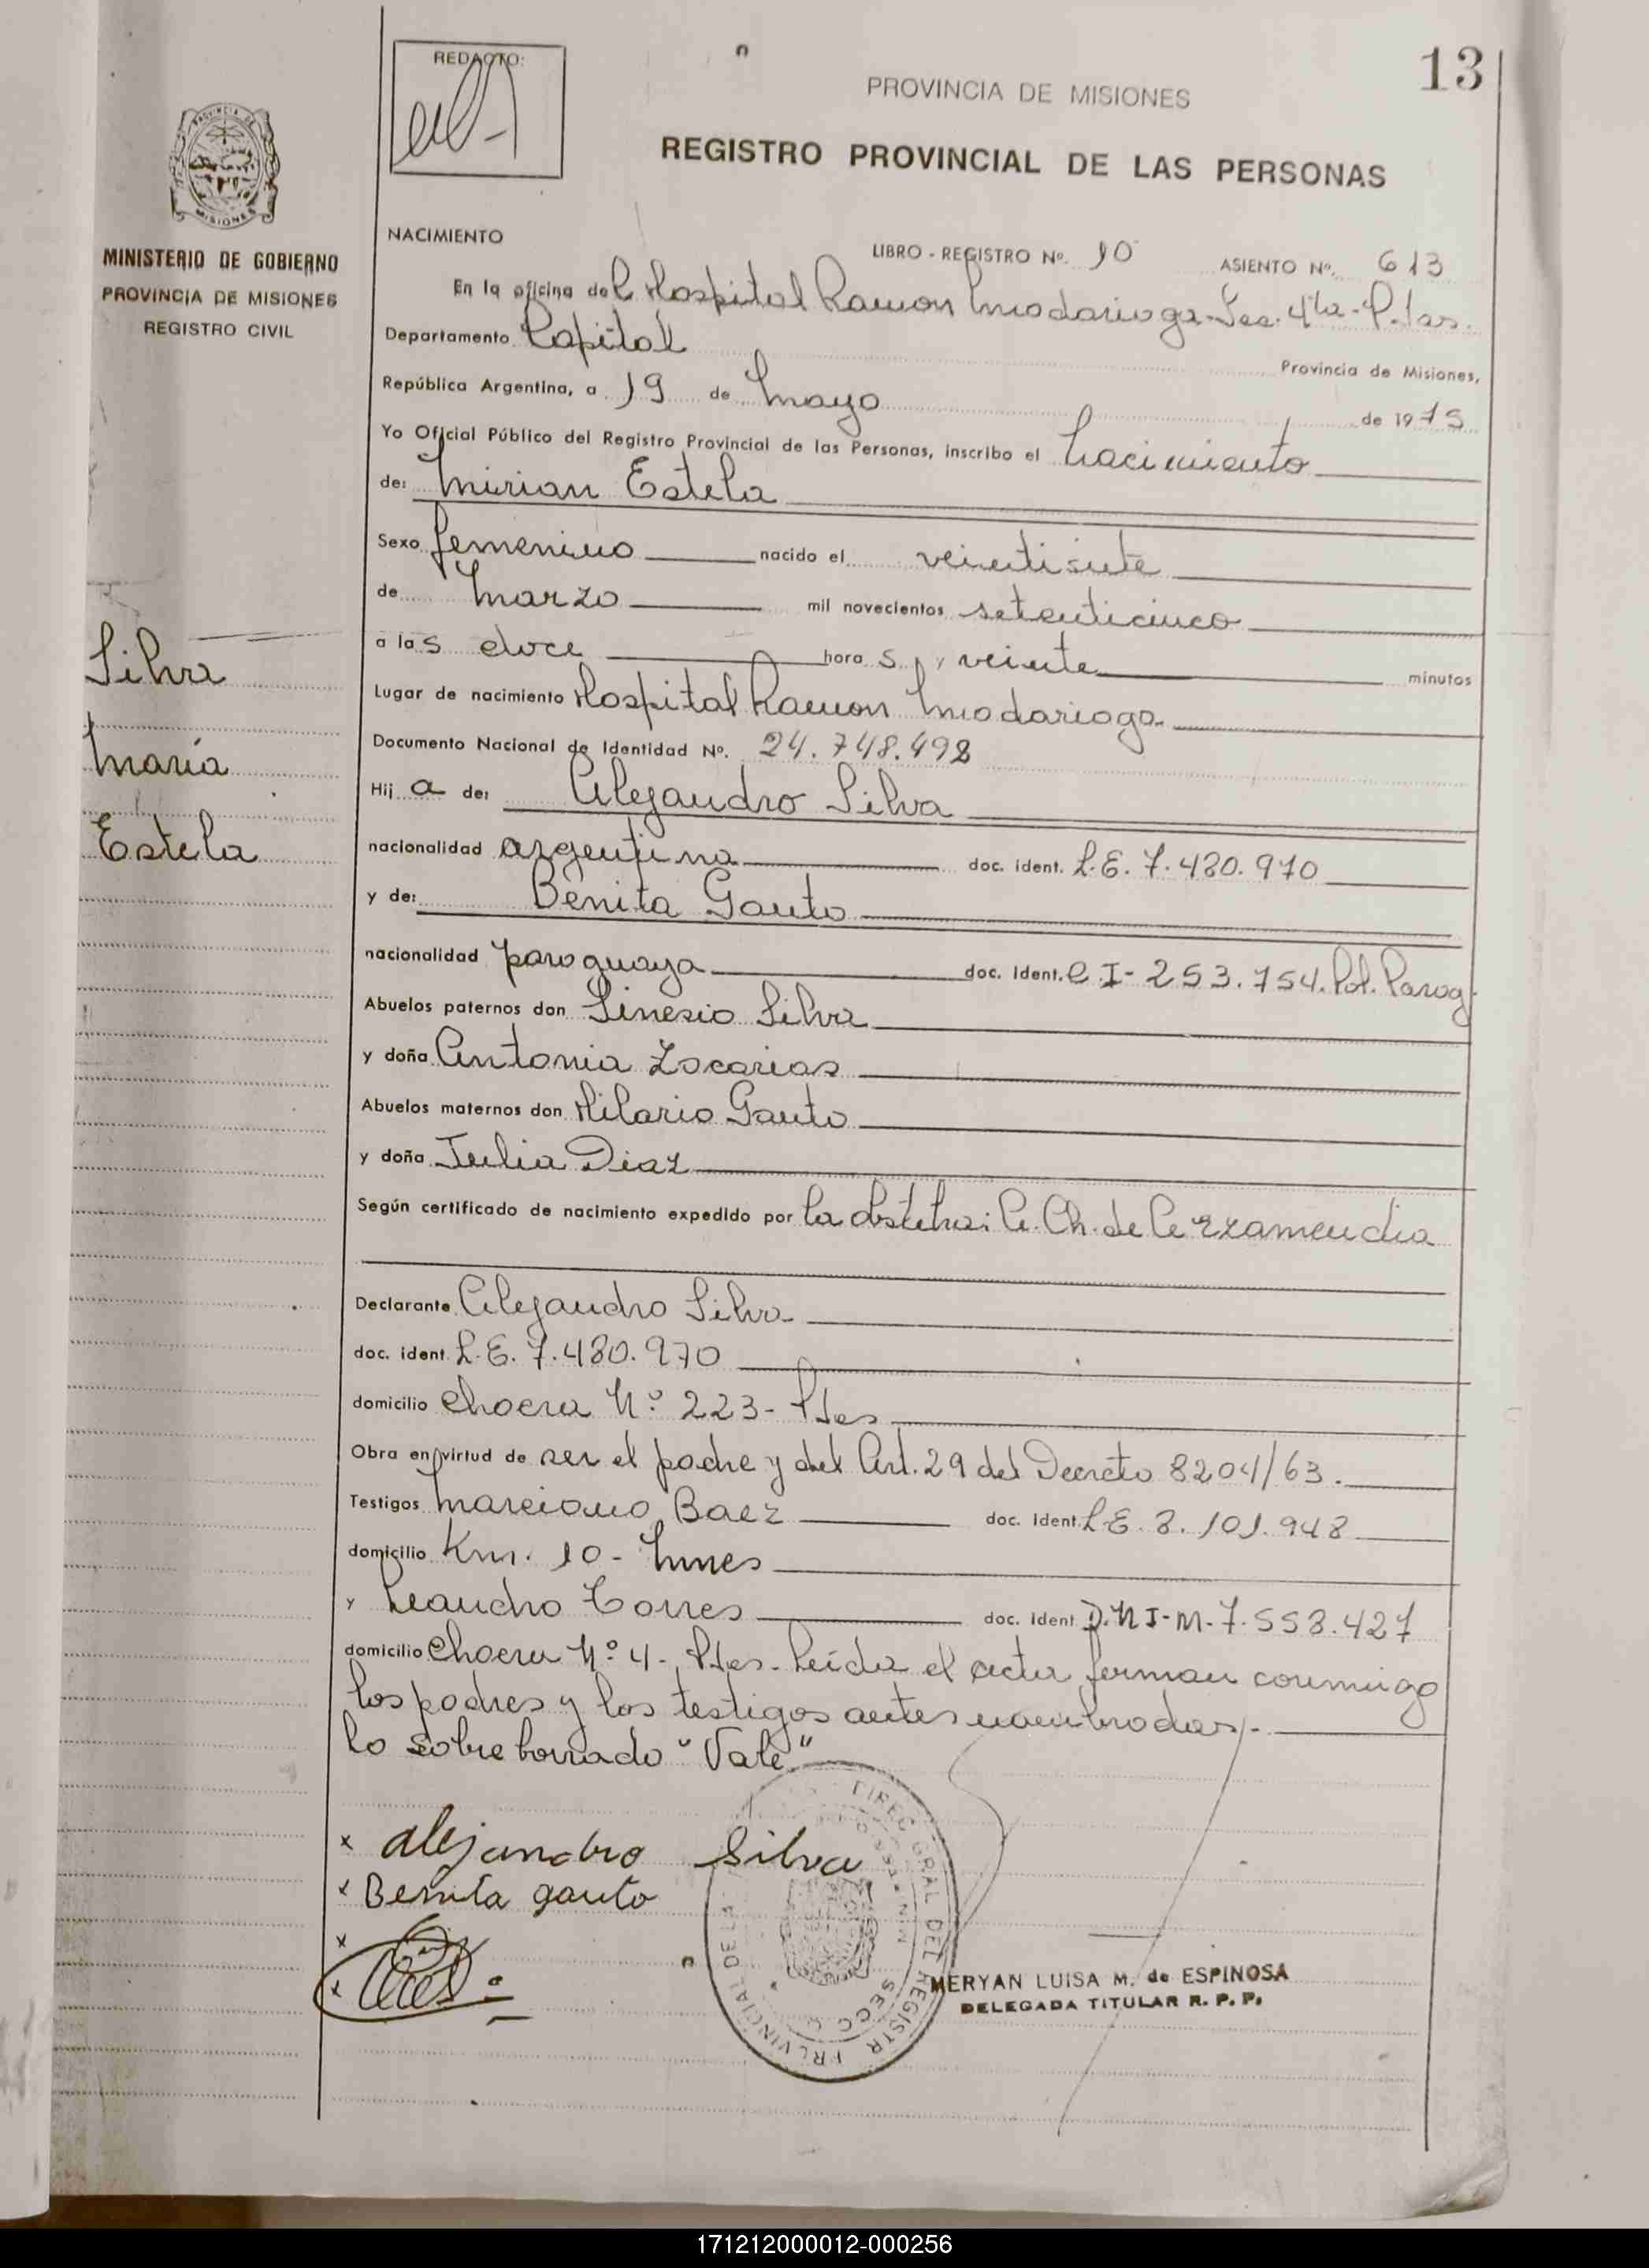 13
REDACTO:
PROVINCIA DE MISIONES
REGISTRO PROVINCIAL DE LAS PERSONAS
PROVINCIA DE
MISIONES
MINISTERIO DE GOBIERNO
PROVINCIA DE MISIONES
REGISTRO CIVIL
Silva
María
Estela
NACIMIENTO
LIBRO - REGISTRO Nº. 10 ASIENTO Nº. 613
En la oficina del Hospital Ramon Madariaga - Sec. 4ta - P.das.
Departamento Capital Provincia de Misiones,
República Argentina, a 19 de Mayo de 1975
Yo Oficial Público del Registro Provincial de las Personas, inscribo el Nacimiento
de: Mirian Estela
Sexo femenino nacido el veintisiete
de Marzo mil novecientos setenticinco
a las doce horas y veinte minutos
Lugar de nacimiento Hospital Ramon Madariaga
Documento Nacional de Identidad Nº. 24.748.492
Hij a de: Alejandro Silva
nacionalidad argentina doc. ident. L.E. 7.480.970
y de: Benita Gauto
nacionalidad paraguaya doc. Ident. C.I - 253.754. Pol. Parag.
Abuelos paternos don Sinesio Silva
y doña Antonia Zacarias
Abuelos maternos don Hilario Gauto
y doña Julia Diaz
Según certificado de nacimiento expedido por la obstetra: A. Ch. de Arzamendia
Declarante Alejandro Silva
doc. ident. L.E. 7.480.970
domicilio Chacra Nº 223 - Pdas
Obra en virtud de ser el padre y del Art. 29 del Decreto 8204/63.
Testigos Marciano Baez doc. Ident. L.E. 8.101.948
domicilio Km. 10 - Mnes
y Leandro Torres doc. Ident. D.N.I - M - 7.558.427
domicilio Chacra Nº 4 - Pdas - Leída el acta firman conmigo
los padres y los testigos antes nombrados.-
Lo sobre borrado "Vale"
x alejandro Silva
x Benita gauto
x
x
DIREC GRAL DEL REGISTR PROVINCIAL DE LA
SECC
MERYAN LUISA M. de ESPINOSA
DELEGADA TITULAR R. P. P.
171212000012-000256